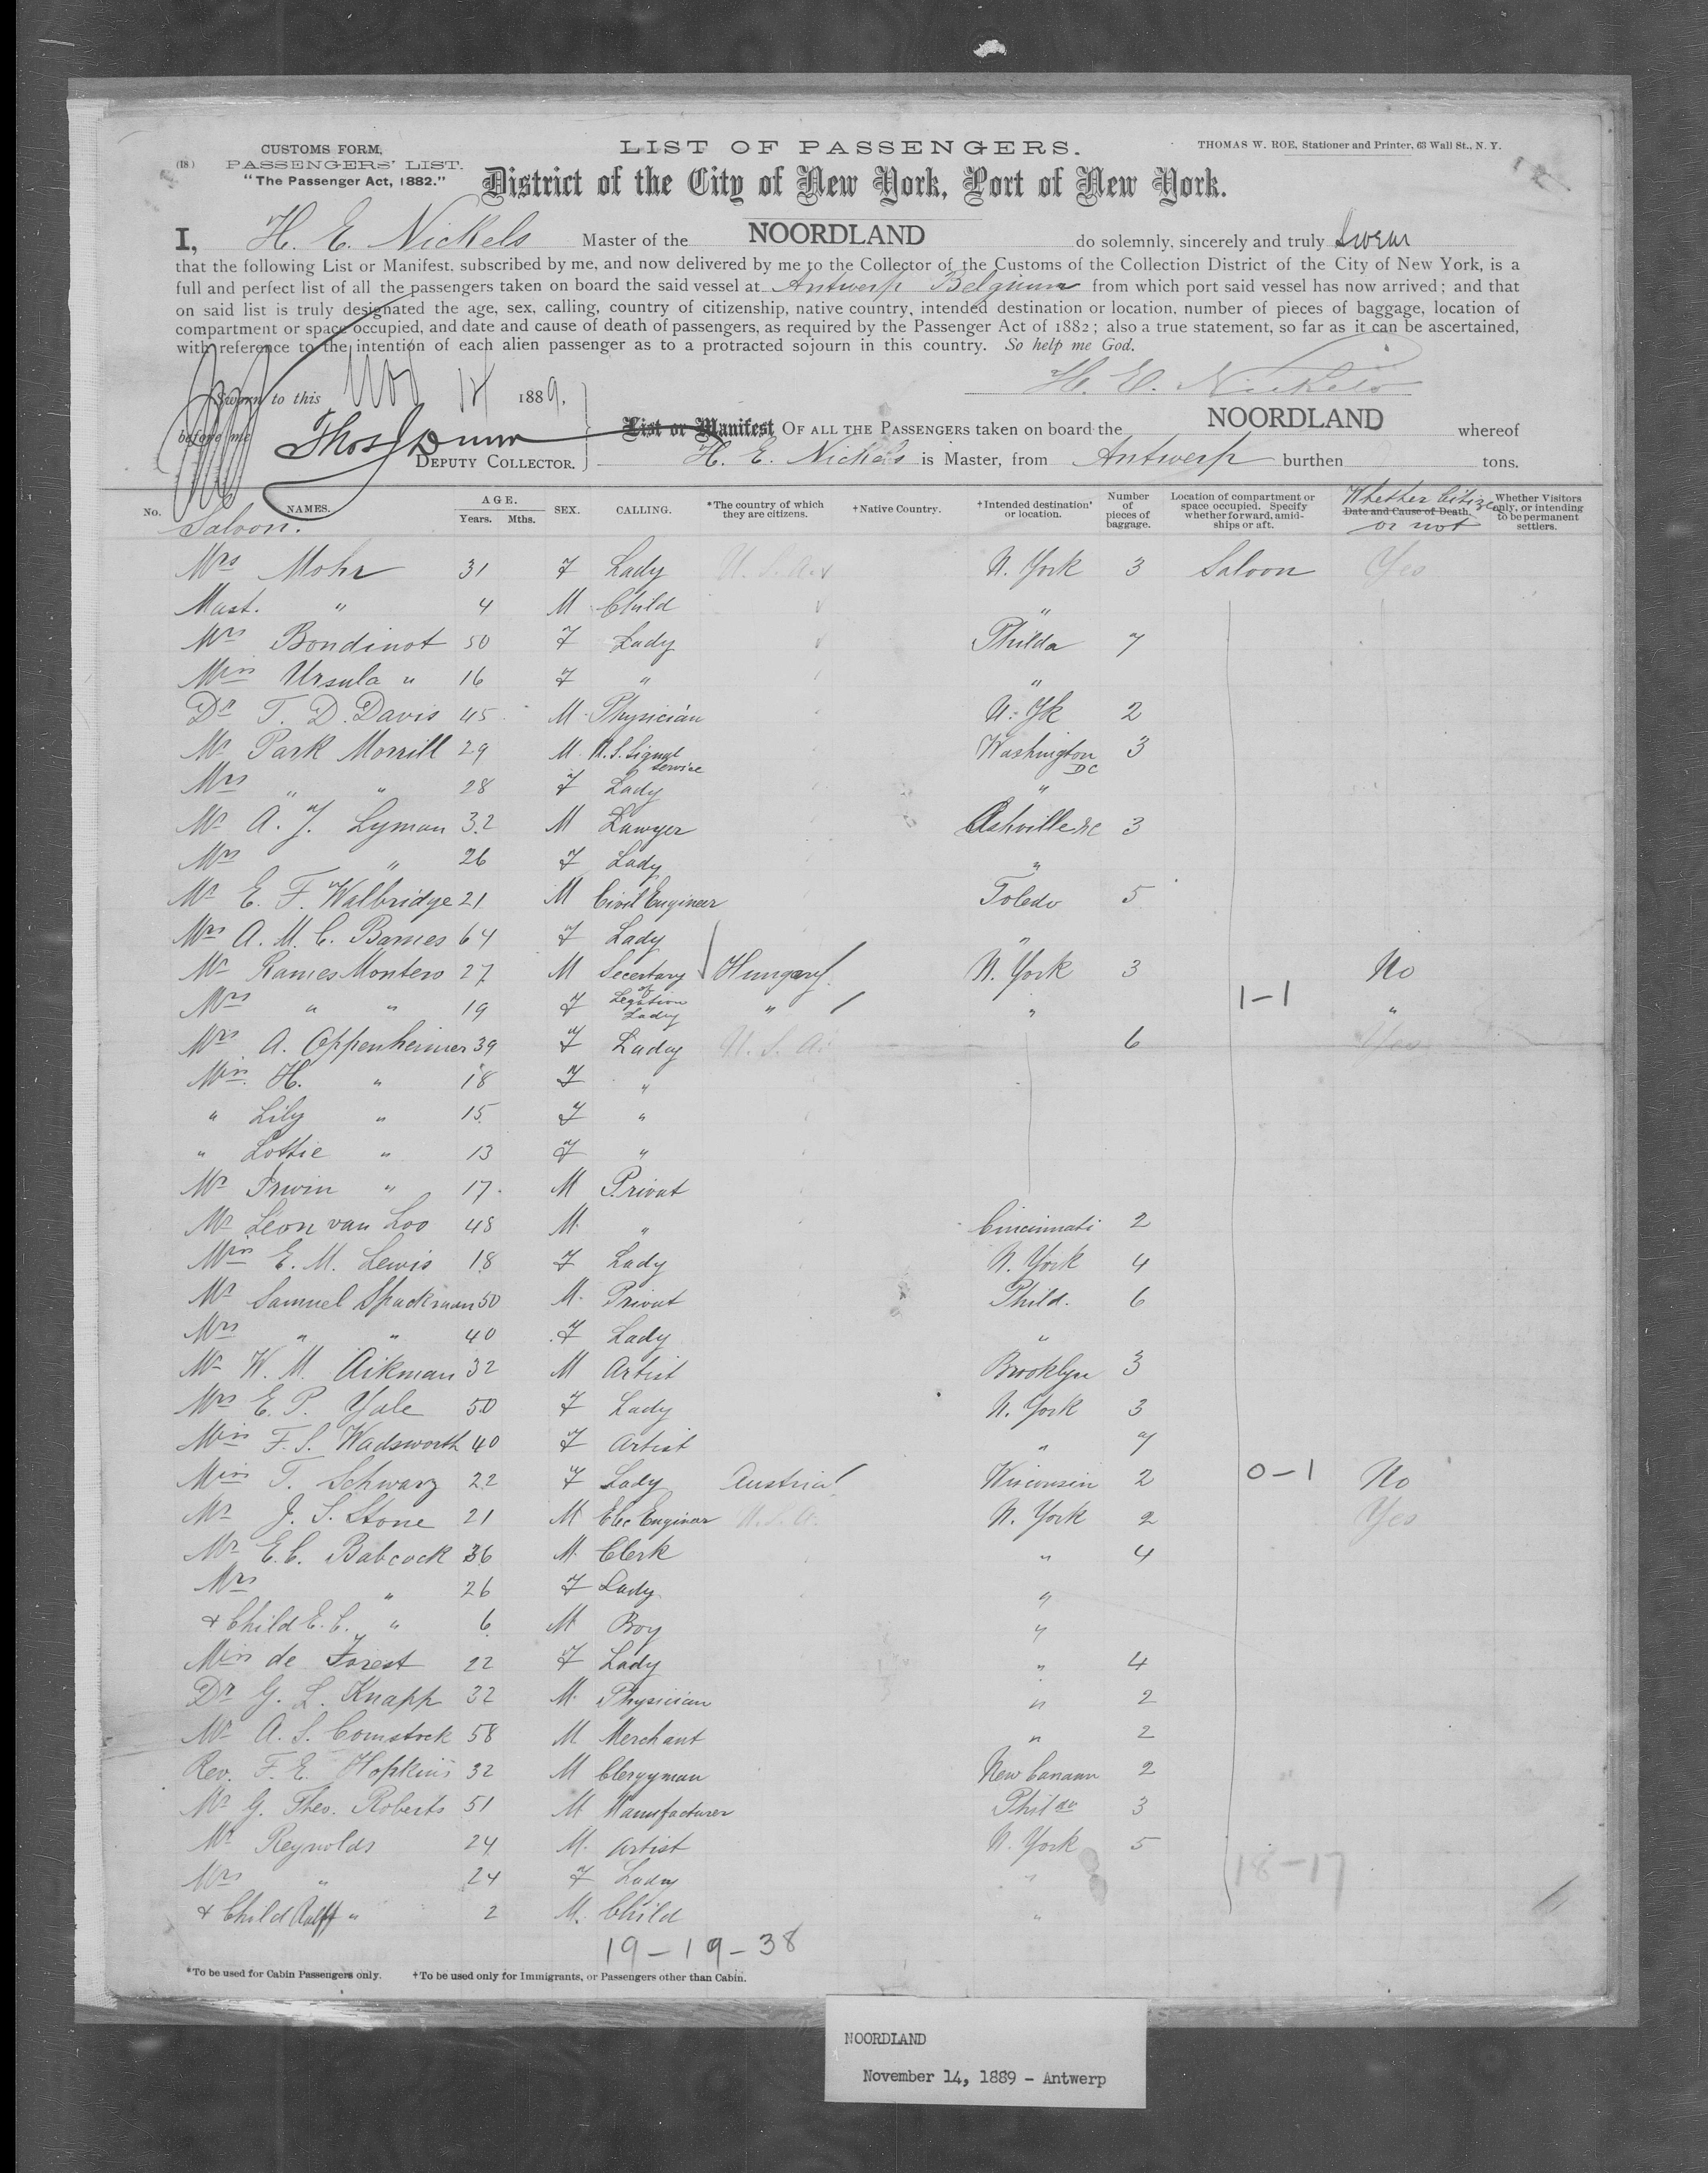 CUSTOMS FORM,
(18) PASSENGERS' LIST.
"The Passenger Act, 1882."
LIST OF PASSENGERS.
THOMAS W. ROE, Stationer and Printer, 63 Wall St., N. Y.
District of the City of New York, Port of New York.
I, H. E. Nickels Master of the NOORDLAND do solemnly, sincerely and truly Swear
that the following List or Manifest, subscribed by me, and now delivered by me to the Collector of the Customs of the Collection District of the City of New York, is a
full and perfect list of all the passengers taken on board the said vessel at Antwerp Belgium from which port said vessel has now arrived; and that
on said list is truly designated the age, sex, calling, country of citizenship, native country, intended destination or location, number of pieces of baggage, location of
compartment or space occupied, and date and cause of death of passengers, as required by the Passenger Act of 1882; also a true statement, so far as it can be ascertained,
with reference to the intention of each alien passenger as to a protracted sojourn in this country. So help me God.
H. E. Nickels
Sworn to this Nov 14 1889,
before me Thos J Dunn
DEPUTY COLLECTOR.
List or Manifest OF ALL THE PASSENGERS taken on board the NOORDLAND whereof
H. E. Nickels is Master, from Antwerp burthen tons.
No. NAMES. AGE. Years. Mths. SEX. CALLING. *The country of which they are citizens. †Native Country. †Intended destination or location. Number of pieces of baggage. Location of compartment or space occupied. Specify whether forward, amidships or aft. Date and Cause of Death. Whether Citizen or not Whether Visitors only, or intending to be permanent settlers.
Saloon.
Mrs Mohr 31 F Lady U. S. A. N. York 3 Saloon Yes
Mast. " 4 M Child "
Mrs Bondinot 50 F Lady Philda 7
Miss Ursula " 16 F " "
Dr T. D. Davis 45 M Physician N. Yk 2
Mr Park Morrill 29 M U. S. Signal Service Washington DC 3
Mrs " " 28 F Lady "
Mr A. J. Lyman 32 M Lawyer Ashville NC 3
Mrs " 26 F Lady "
Mr E. F. Walbridge 21 M Civil Engineer Toledo 5
Mrs A. M. C. Barnes 64 F Lady "
Mr Rames Montero 27 M Secertary of Legation Hungary N. York 3 No
Mrs " " 19 F Lady " " 1-1 "
Mrs A. Oppenheimer 39 F Lady U. S. A. 6 Yes
Miss H. " 18 F "
" Lily " 15 F "
" Lottie " 13 F "
Mr Irwin " 17 M Privat
Mr Leon van Loo 48 M " Cincinnati 2
Miss E. M. Lewis 18 F Lady N. York 4
Mr Samuel Spackman 50 M Privat Phild. 6
Mrs " " 40 F Lady "
Mr W. M. Aikman 32 M Artist Brooklyn 3
Mrs E. P. Yale 50 F Lady N. York 3
Miss F. S. Wadsworth 40 F Artist " 7
Miss T. Schwarz 22 F Lady Austria Wisconsin 2 0-1 No
Mr J. S. Stone 21 M Elec Engineer U. S. A. N. York 2 Yes
Mr E. C. Babcock 36 M Clerk " 4
Mrs " 26 F Lady "
+ Child E. C. " 6 M Boy "
Miss de Forest 22 F Lady " 4
Dr G. L. Knapp 32 M Physician " 2
Mr A. S. Comstock 58 M Merchant " 2
Rev. F. E. Hopkins 32 M Clergyman New Canann 2
Mr G. Theo. Roberts 51 M Manufacturer Philda 3
Mr Reynolds 24 M Artist N. York 5
Mrs " 24 F Lady " 18-17
+ Child Ralff " 2 M Child "
19-19-38
*To be used for Cabin Passengers only. †To be used only for Immigrants, or Passengers other than Cabin.
NOORDLAND
November 14, 1889 - Antwerp